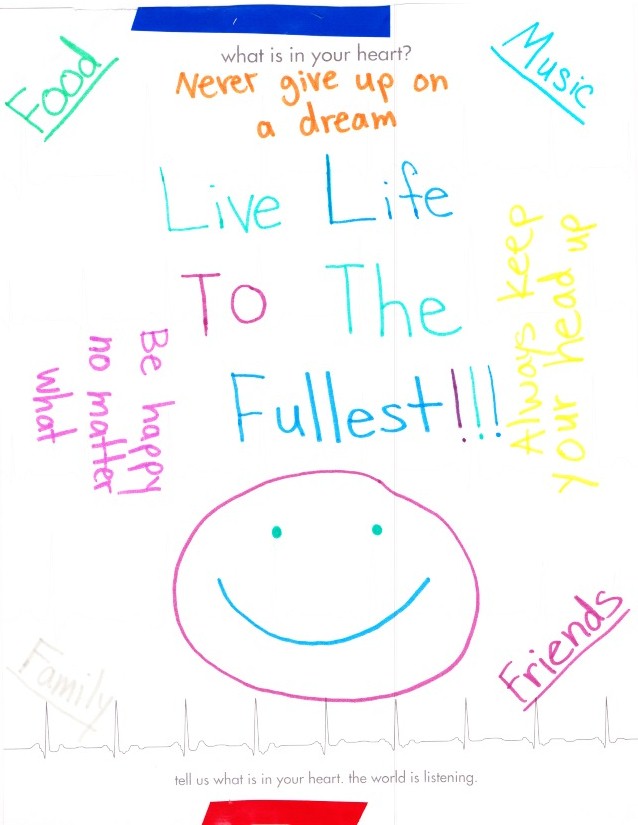 what is in your heart?
Food
Music
Never give up on
a dream
Live Life
To The
Fullest!!!
Always keep
your head up
Be happy
no matter
what
Family
Friends
tell us what is in your heart. the world is listening.